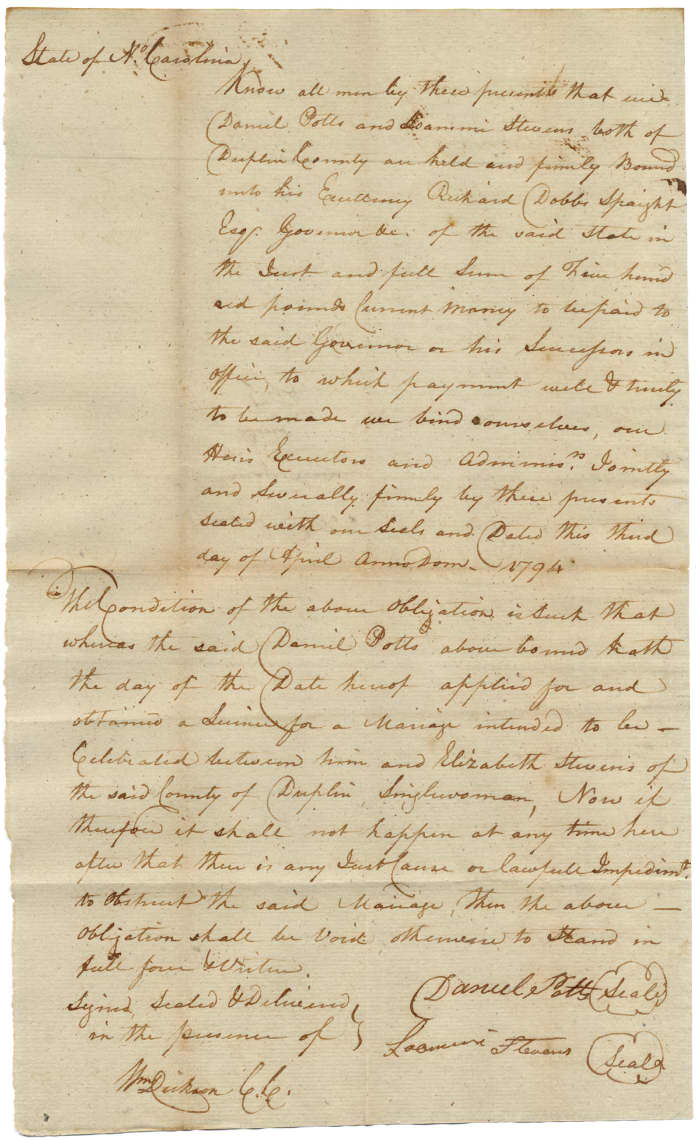 State of No. Carolina
Know all men by these presents that we
Daniel Potts and Loammi Stevens both of
Duplin County are held and firmly Bound
unto his Excellency Richard Dobbs Spaight
Esqr. Governor &c. of the said State in
the Just and full Sum of Five hund
red pounds Current Money to be paid to
the said Governor or his Successors in
office, to which payment well & truly
to be made we bind ourselves, our
Heirs Executors and Adminisrs. Jointly
and Severally firmly by these presents
Sealed with our Seals and Dated this third
day of April Anno Dom. 1794
The Condition of the above Obligation is Such that
whereas the said Daniel Potts above bound Hath
the day of the Date hereof applied for and
obtained a Licince for a Mariage intended to be –
Celebrated between him and Elizabeth Stevens of
the said County of Duplin, Singlewoman, Now if
therefore it shall not happen at any time here
after that there is any Just Cause or lawfull Impedimt.
to Obstruct the said Mariage, then the above –
Obligation shall be Void otherwise to Stand in
full force & Virtue.
Signed, Sealed & Delivered
in the presence of
Daniel Potts (Seal)
Loammi Stevens (Seal)
Wm. Dickson C.C.